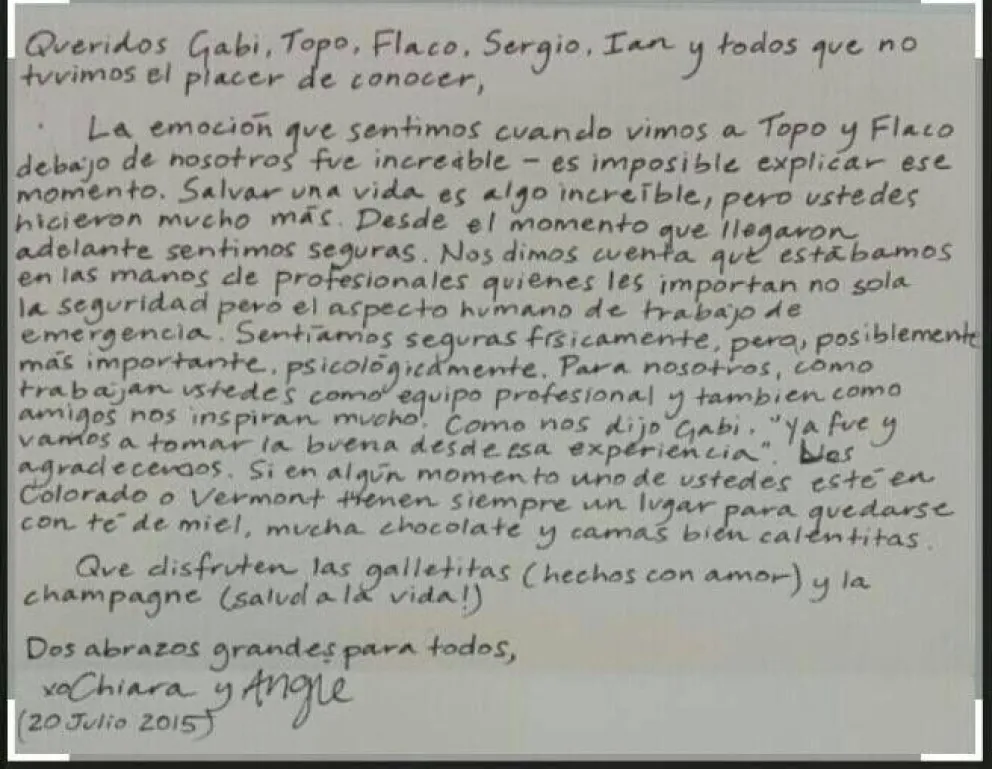 Queridos Gabi, Topo, Flaco, Sergio, Ian y todos que no
tuvimos el placer de conocer,
La emoción que sentimos cuando vimos a Topo y Flaco
debajo de nosotros fue increible - es imposible explicar ese
momento. Salvar una vida es algo increíble, pero ustedes
hicieron mucho más. Desde el momento que llegaron
adelante sentimos seguras. Nos dimos cuenta que estábamos
en las manos de profesionales quienes les importan no sola
la seguridad pero el aspecto humano de trabajo de
emergencia. Sentíamos seguras físicamente, pero, posiblemente
más importante, psicológicamente. Para nosotros, como
trabajan ustedes como equipo profesional y tambien como
amigos nos inspiran mucho! Como nos dijo Gabi, "ya fue y
vamos a tomar la buena desde esa experiencia". Les
agradecemos. Si en algún momento uno de ustedes esté en
Colorado o Vermont tienen siempre un lugar para quedarse
con té de miel, mucha chocolate y camas bien calentitas.
Que disfruten las galletitas (hechos con amor) y la
champagne (salud a la vida!)
Dos abrazos grandes para todos,
xo Chiara y Angie
(20 Julio 2015)